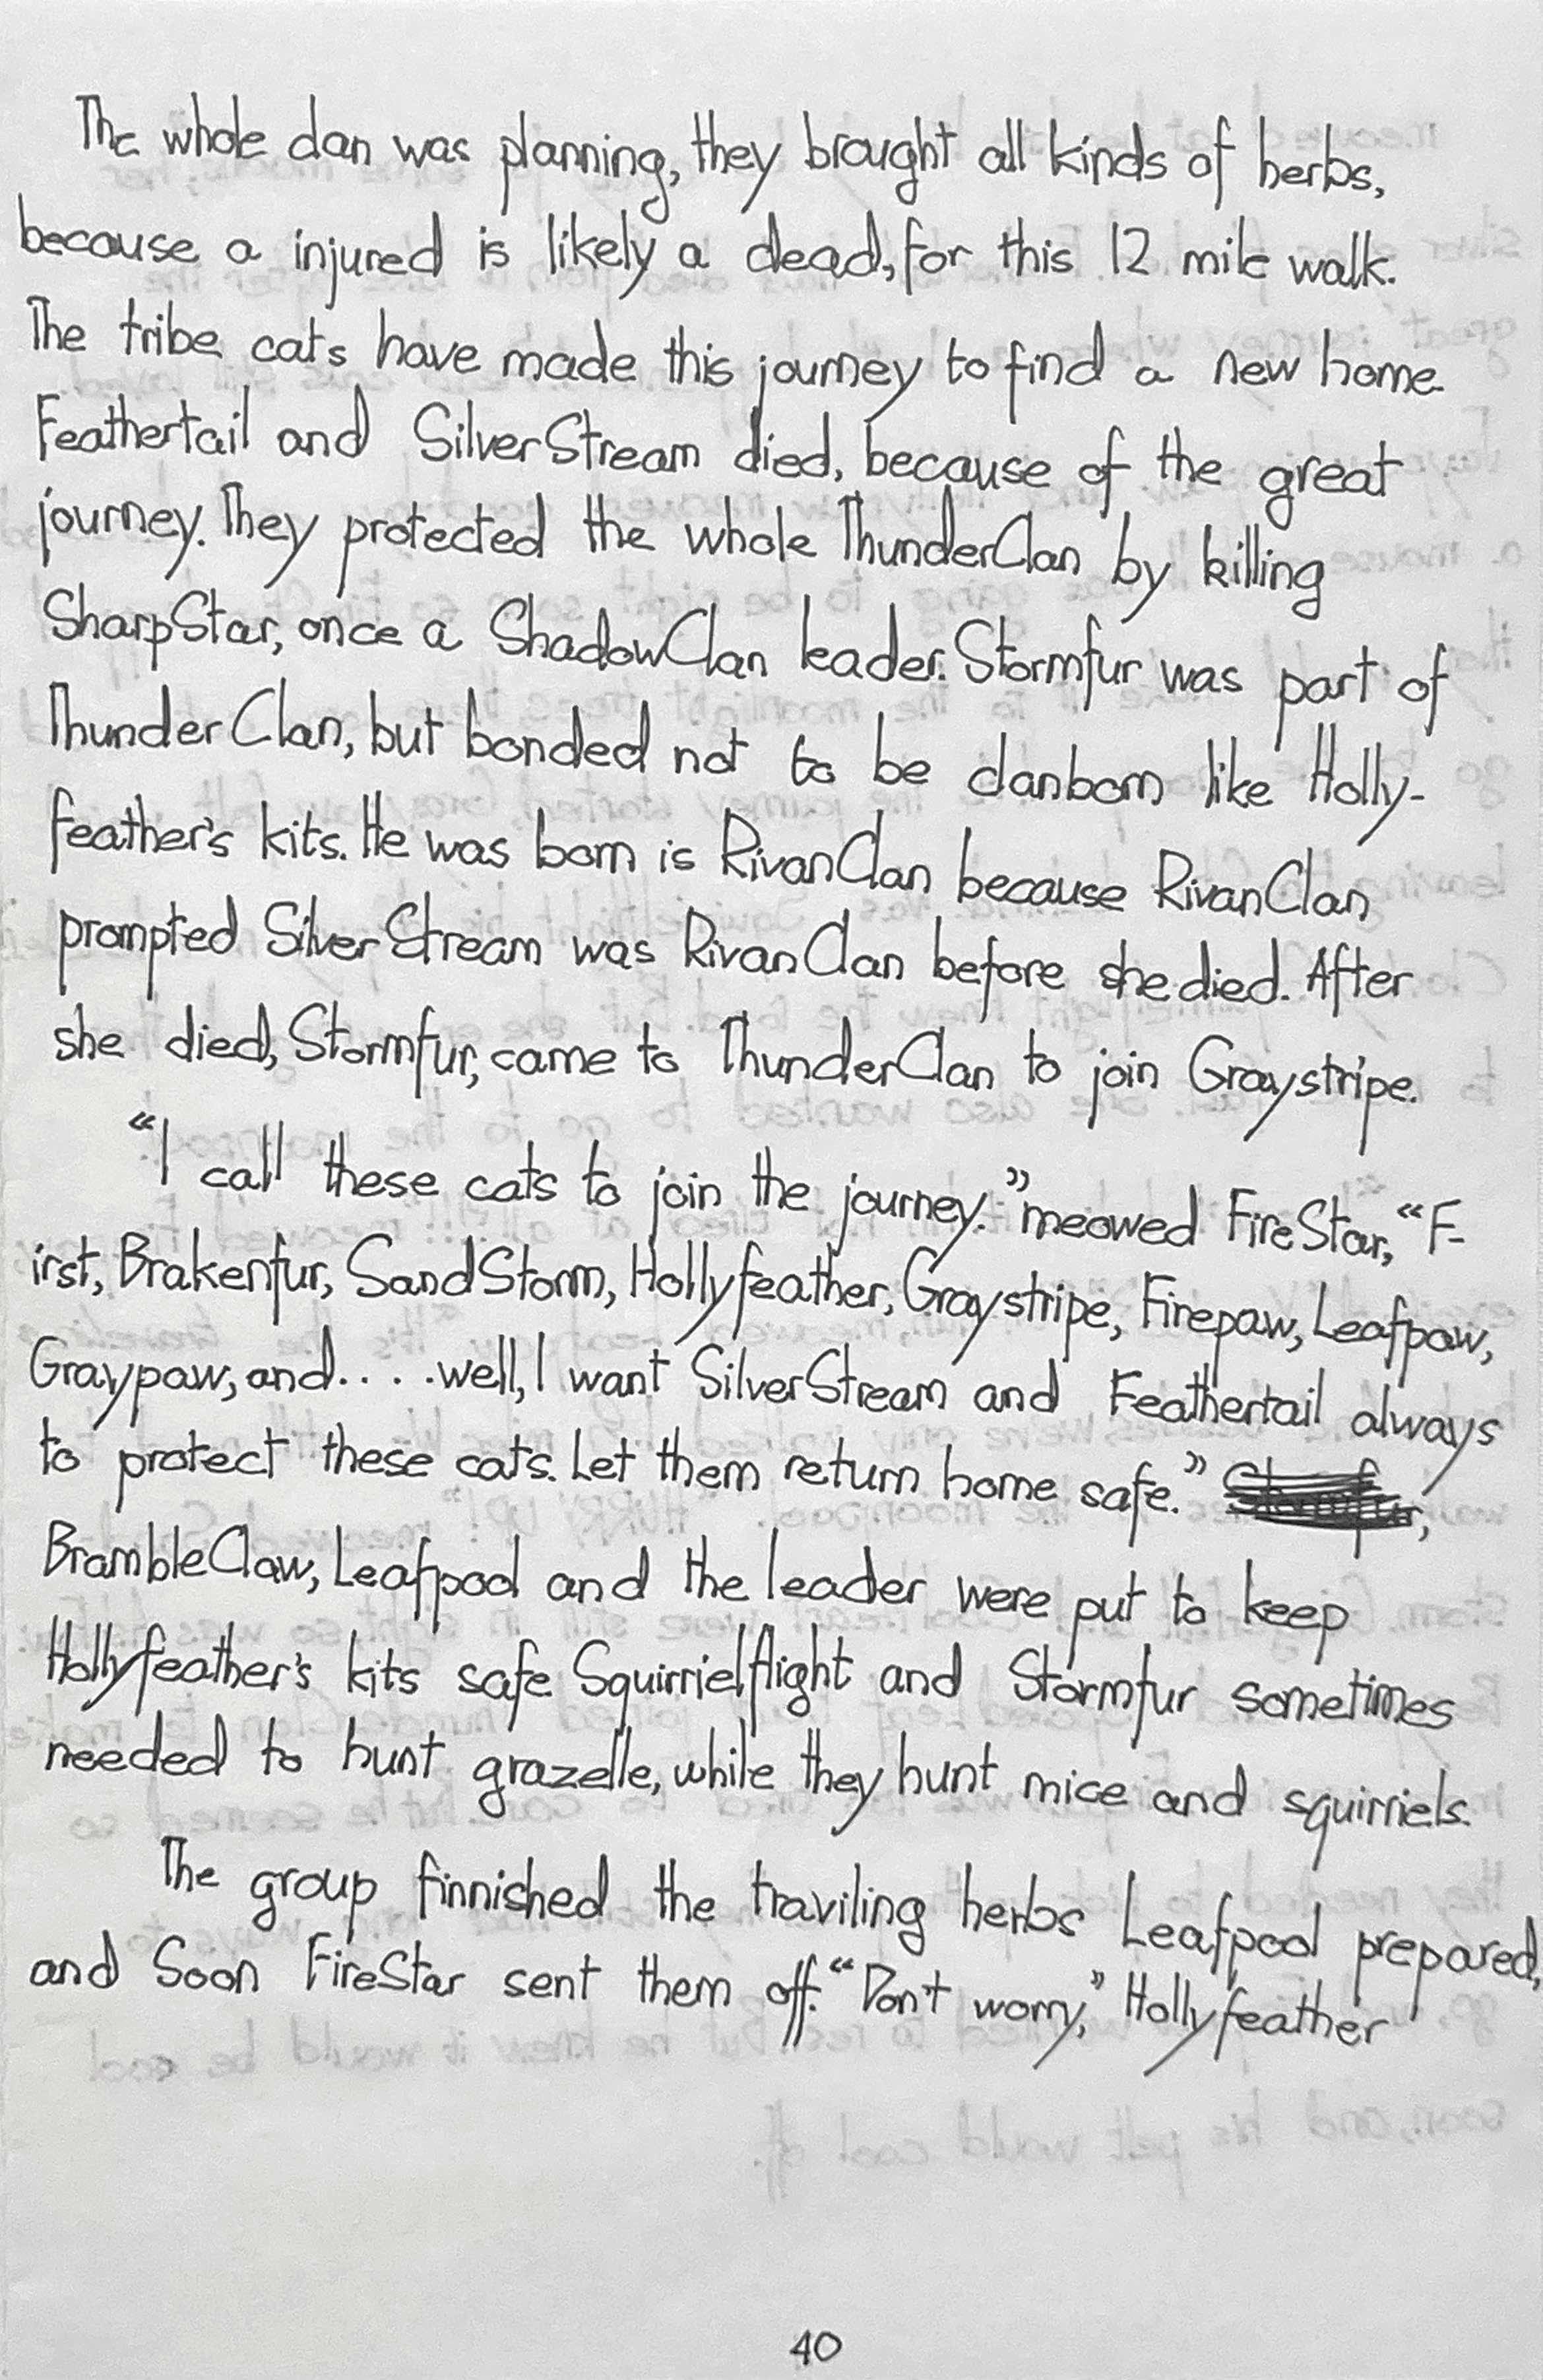 The whole clan was planning, they brought all kinds of herbs,
because a injured is likely a dead, for this 12 mile walk.
The tribe cats have made this journey to find a new home.
Feathertail and SilverStream died, because of the great
journey. They protected the whole ThunderClan by killing
SharpStar, once a ShadowClan leader. Stormfur was part of
ThunderClan, but bonded not to be clanborn like Holly-
feather's kits. He was born is RivanClan because RivanClan
prompted SilverStream was RivanClan before she died. After
she died, Stormfur, came to ThunderClan to join Graystripe.
"I call these cats to join the journey." meowed FireStar, "F-
irst, Brakenfur, SandStorm, Hollyfeather, Graystripe, Firepaw, Leafpaw,
Graypaw, and.....well, I want SilverStream and Feathertail always
to protect these cats. Let them return home safe."
BrambleClaw, Leafpool and the leader were put to keep
Hollyfeather's kits safe. Squirrielflight and Stormfur sometimes
needed to hunt grazelle, while they hunt mice and squirriels.
The group finnished the traviling herbs Leafpool prepared,
and Soon FireStar sent them off. "Don't worry," Hollyfeather
40